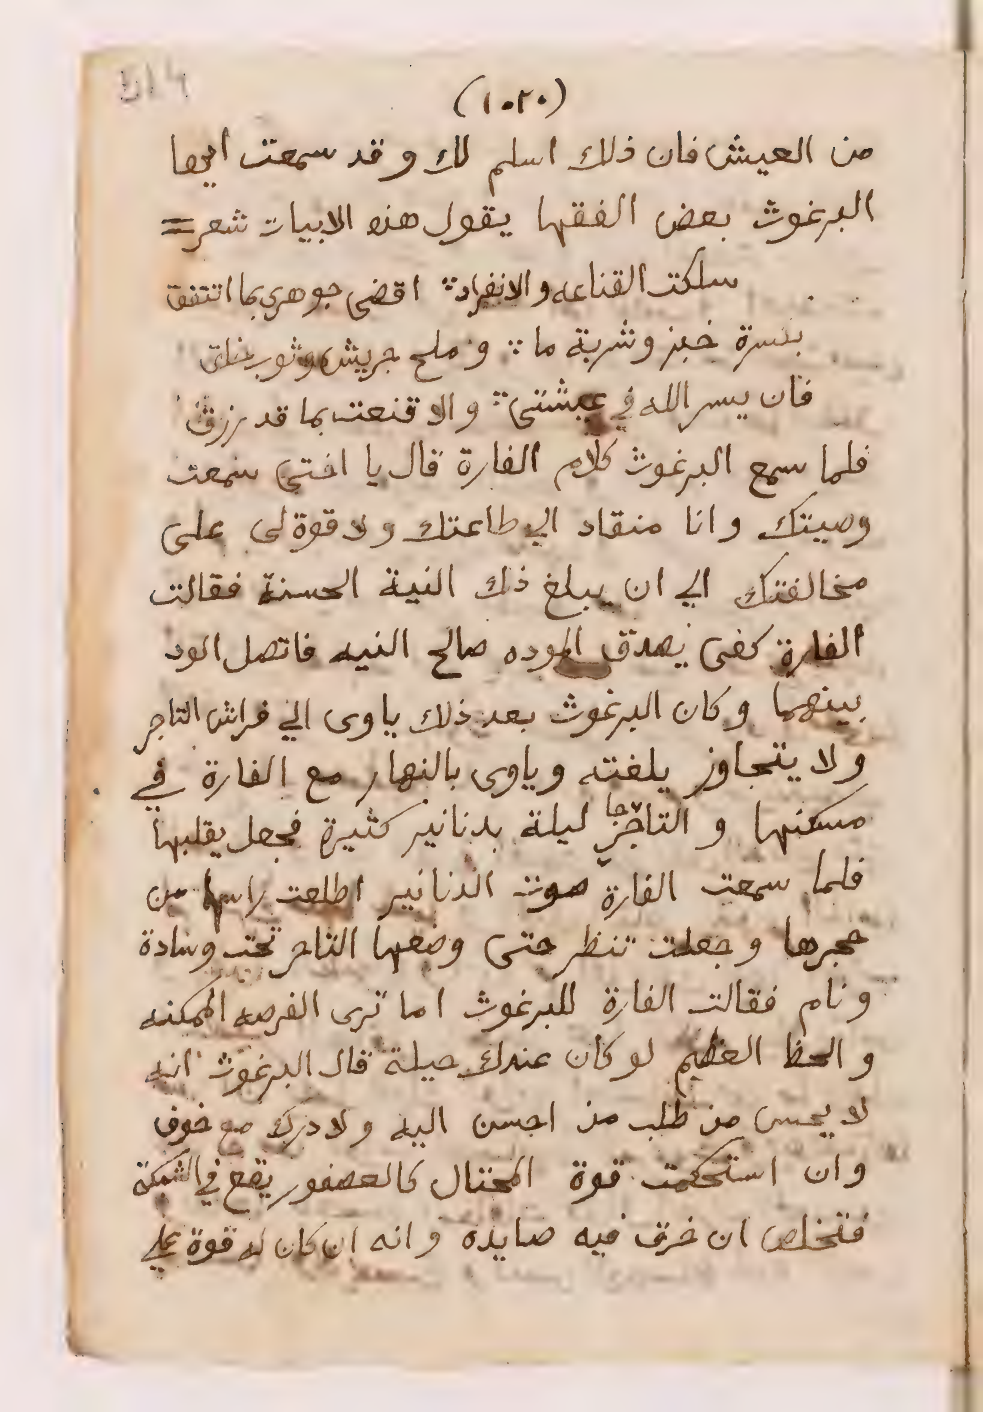 (١٠٢٠)
من العيش فان ذلك اسلم لك وقد سمعت ايها
البرغوث بعض الفقها يقول هذه الابيات شعر =
سلكت القناعه والانفراد ∴ اقضى جوهري بما اتتفق
بكسرة خبز وشربة ما ∴ وملح جريش وثوب خلق
فان يسر الله في عيشتي ∴ والا قنعت بما قد رزق
فلما سمع البرغوث كلام الفارة قال يا اختى سمعت
وصيتك وانا منقاد الي طاعتك ولا قوة لى على
مخالفتك الي ان يبلغ ذلك النية الحسنة فقالت
الفارة كفى بصدق الموده صالح النيه فاتصل الود
بينهما وكان البرغوث بعد ذلك ياوى الي فراش التاجر
ولا يتجاوز بلغته وياوى بالنهار مع الفارة في
مسكنها و التاجر جا ليلة بدنانير كثيرة فجعل يقلبها
فلما سمعت الفارة صوت الدنانير اطلعت راسها من
حجرها وجعلت تنظر حتى وضعها التاجر تحت وسادة
ونام فقالت الفارة للبرغوث اما ترى الفرصه الممكنه
و الحظ العظيم لو كان عندك حيلة قال البرغوث انه
لا يحسن من طلب من احسن اليه ولا درك مع خوف
وان استحكمت قوة المحتال كالعصفور يقع في الشبكة
فتخلص ان خرق فيه صايده وانه ان كان له قوة علي